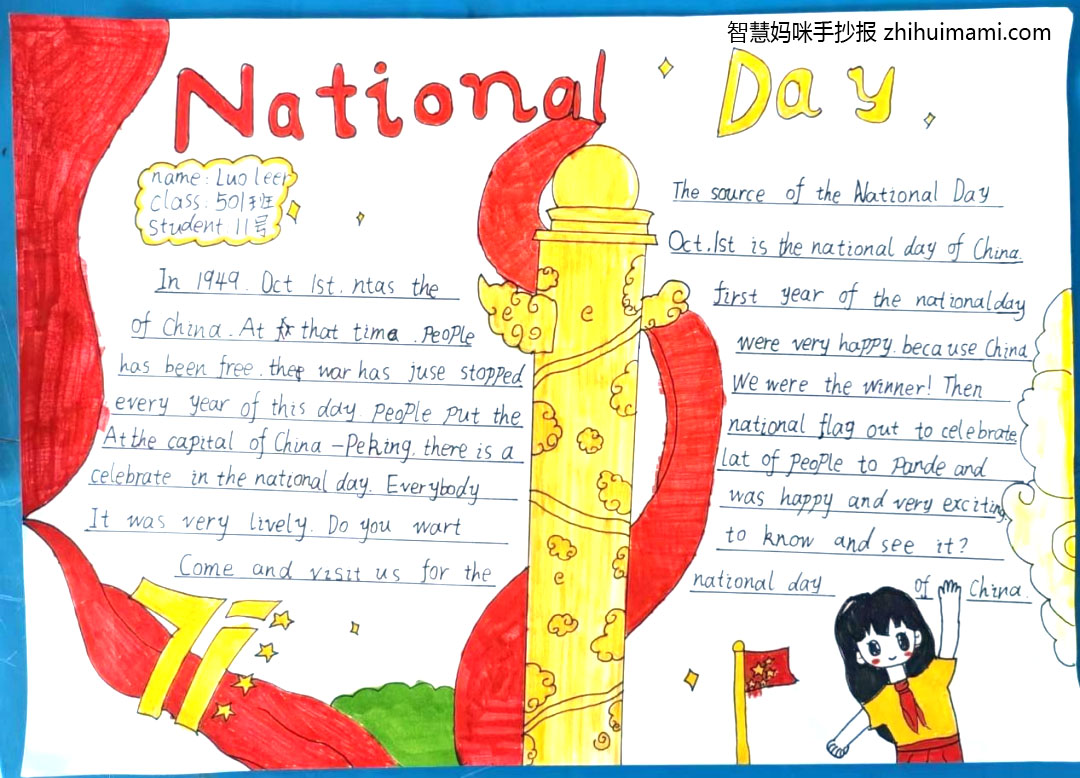 智慧妈咪手抄报 zhihuimami.com
National Day
name: Luo leer
class: 501班
Student 11号
In 1949. Oct 1st. ntas the
of China. At that tima. People
has been free. the war has juse stopped
every year of this day People put the
At the capital of China - Peking. there is a
celebrate in the national day. Everybody
It was very lively. Do you wart
Come and visit us for the
The source of the National Day
Oct.1st is the national day of China.
first year of the national day
were very happy. because China
We were the winner! Then
national flag out to celebrate
lat of People to Pande and
was happy and very exciting
to know and see it?
national day of China.